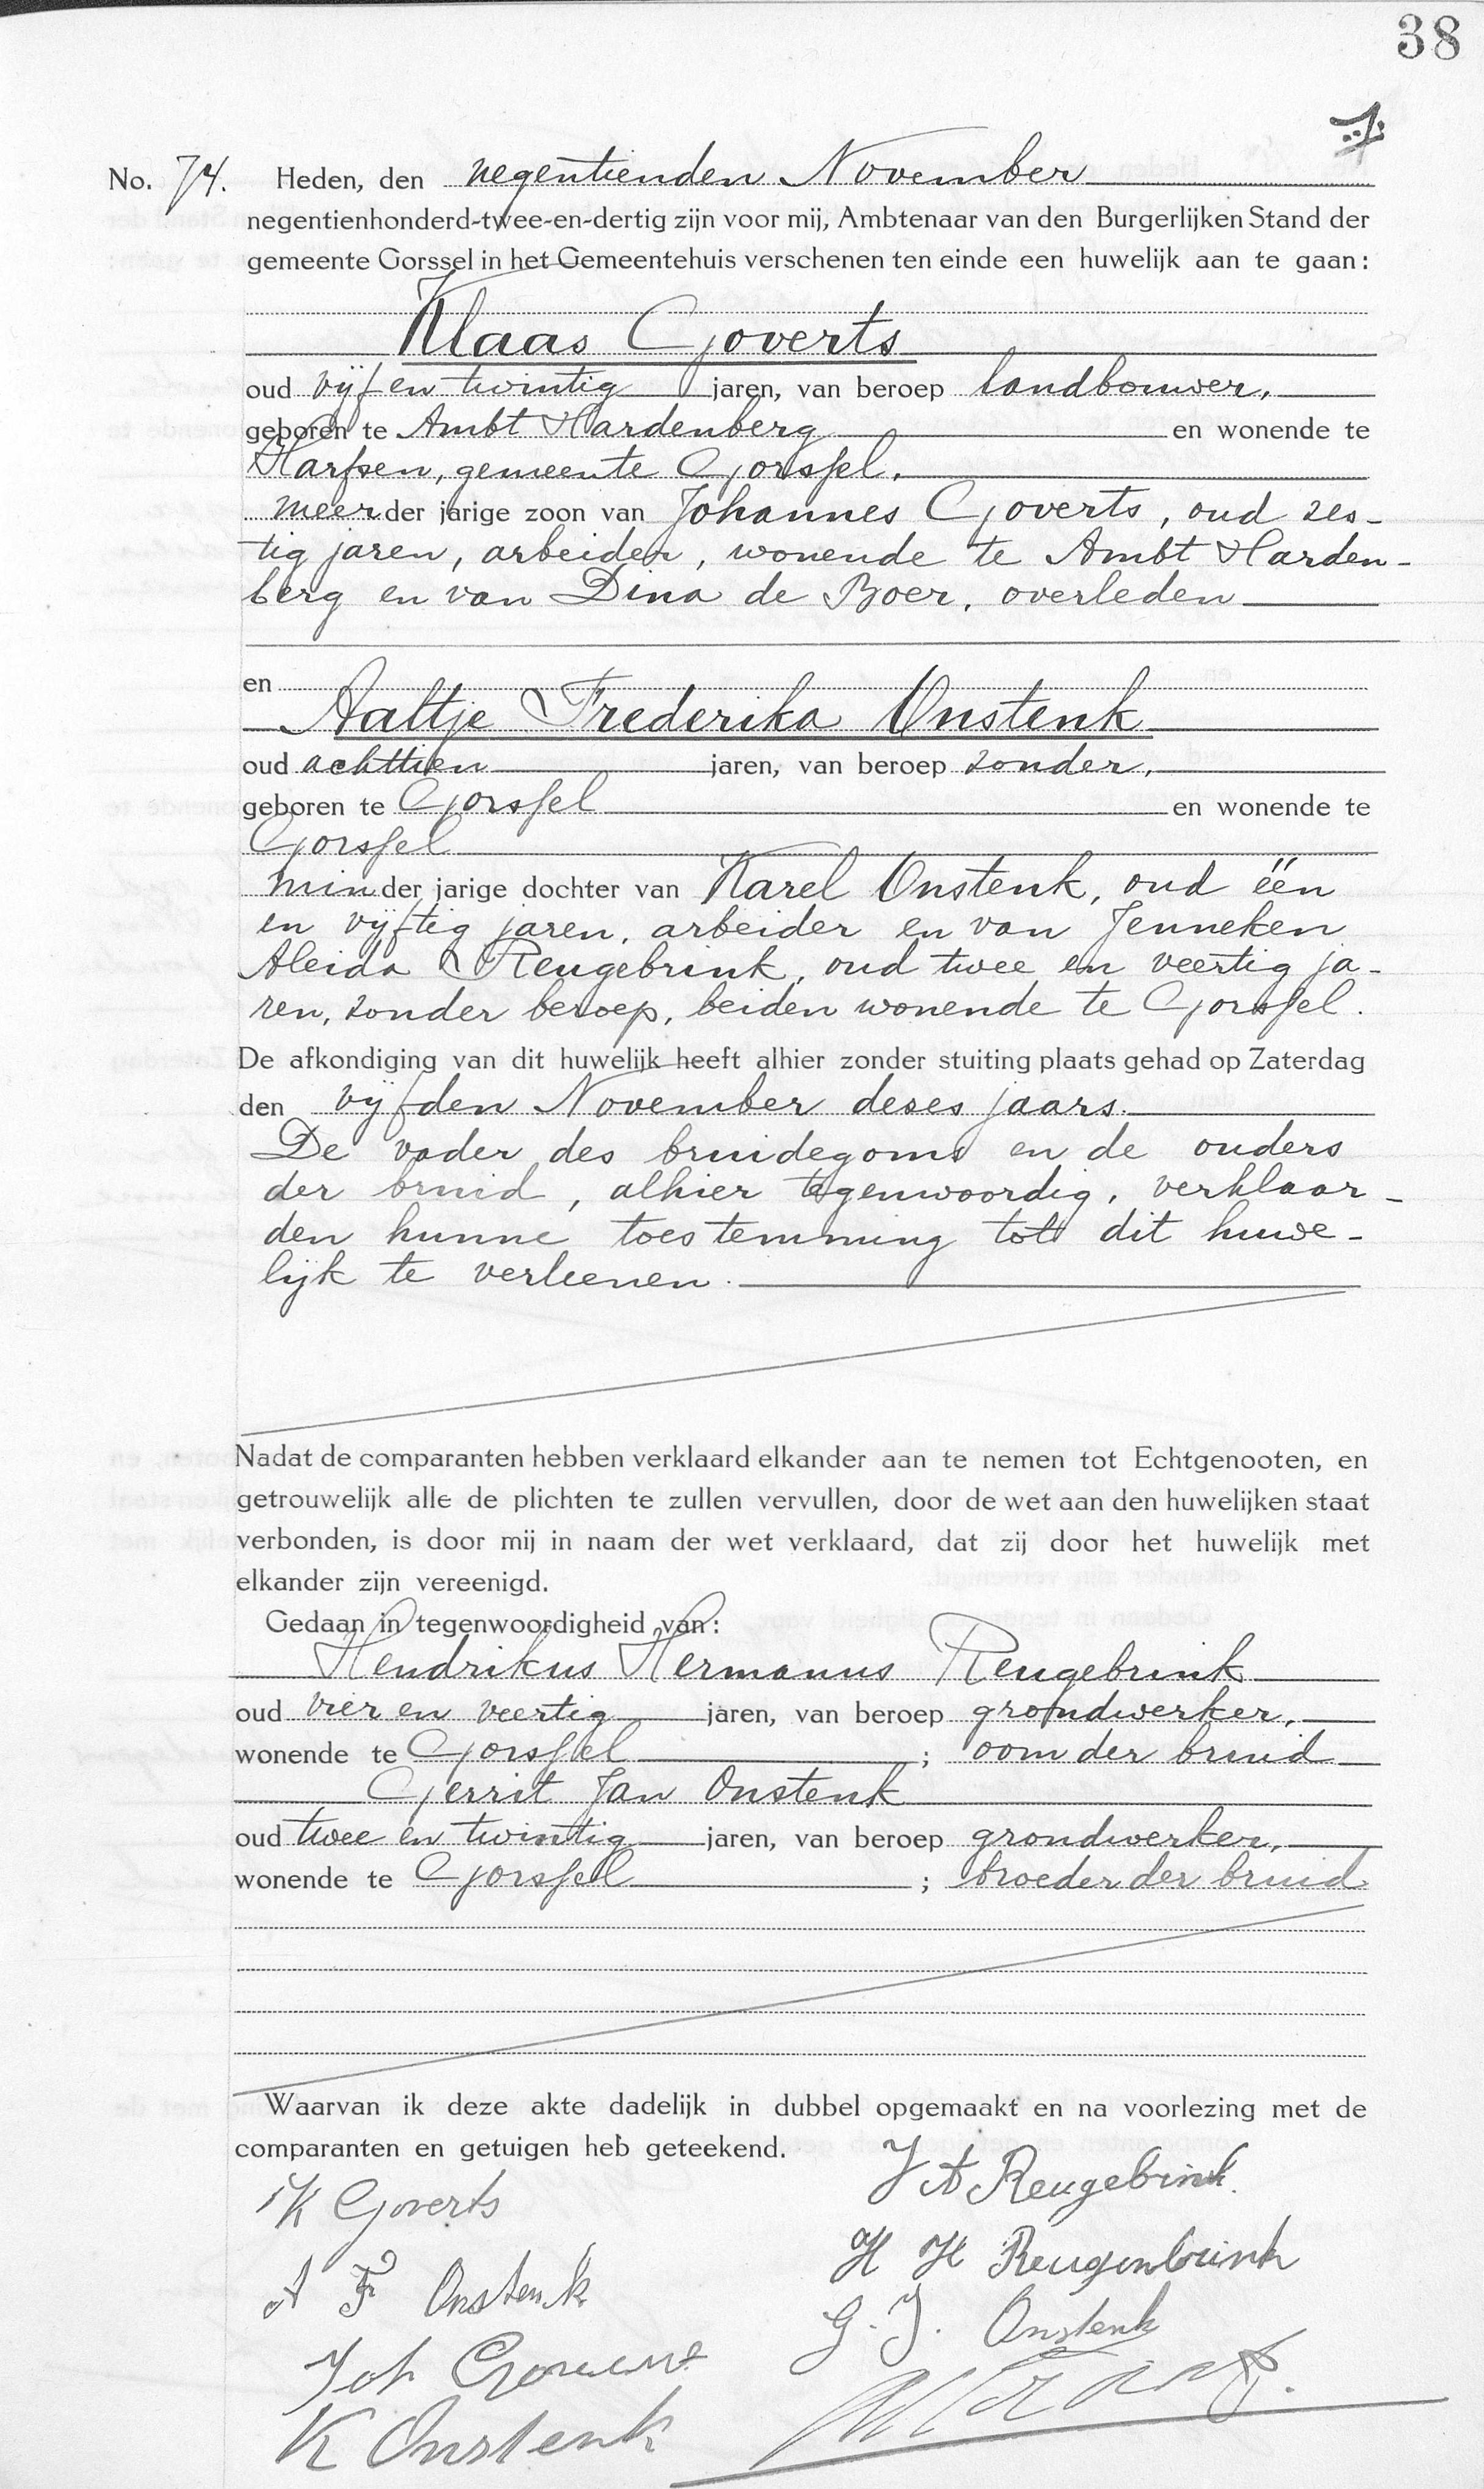 38
No. 74. Heden, den negentienden November
negentienhonderd-twee-en-dertig zijn voor mij, Ambtenaar van den Burgerlijken Stand der
gemeente Gorssel in het Gemeentehuis verschenen ten einde een huwelijk aan te gaan:
Klaas Goverts
oud vijf en twintig jaren, van beroep landbouwer,
geboren te Ambt Hardenberg en wonende te
Harfsen, gemeente Gorssel,
meerder jarige zoon van Johannes Goverts, oud zes-
tig jaren, arbeider, wonende te Ambt Harden-
berg en van Dina de Boer, overleden
en
Aaltje Frederika Onstenk
oud achttien jaren, van beroep zonder,
geboren te Gorssel en wonende te
Gorssel
minder jarige dochter van Karel Onstenk, oud één
en vijftig jaren, arbeider en van Jenneken
Aleida Reugebrink, oud twee en veertig ja-
ren, zonder beroep, beiden wonende te Gorssel.
De afkondiging van dit huwelijk heeft alhier zonder stuiting plaats gehad op Zaterdag
den vijfden November deses jaars.
De vader des bruidegoms en de ouders
der bruid, alhier tegenwoordig, verklaar-
den hunne toestemming tot dit huwe-
lijk te verleenen.
Nadat de comparanten hebben verklaard elkander aan te nemen tot Echtgenooten, en
getrouwelijk alle de plichten te zullen vervullen, door de wet aan den huwelijken staat
verbonden, is door mij in naam der wet verklaard, dat zij door het huwelijk met
elkander zijn vereenigd.
Gedaan in tegenwoordigheid van:
Hendrikus Hermanus Reugebrink
oud vier en veertig jaren, van beroep grondwerker,
wonende te Gorssel ; oom der bruid
Gerrit Jan Onstenk
oud twee en twintig jaren, van beroep grondwerker,
wonende te Gorssel ; broeder der bruid
Waarvan ik deze akte dadelijk in dubbel opgemaakt en na voorlezing met de
comparanten en getuigen heb geteekend.
K Goverts
A F Onstenk
Joh
K Onstenk
J A Reugebrink.
H H Reugenbrink
G. J. Onstenk